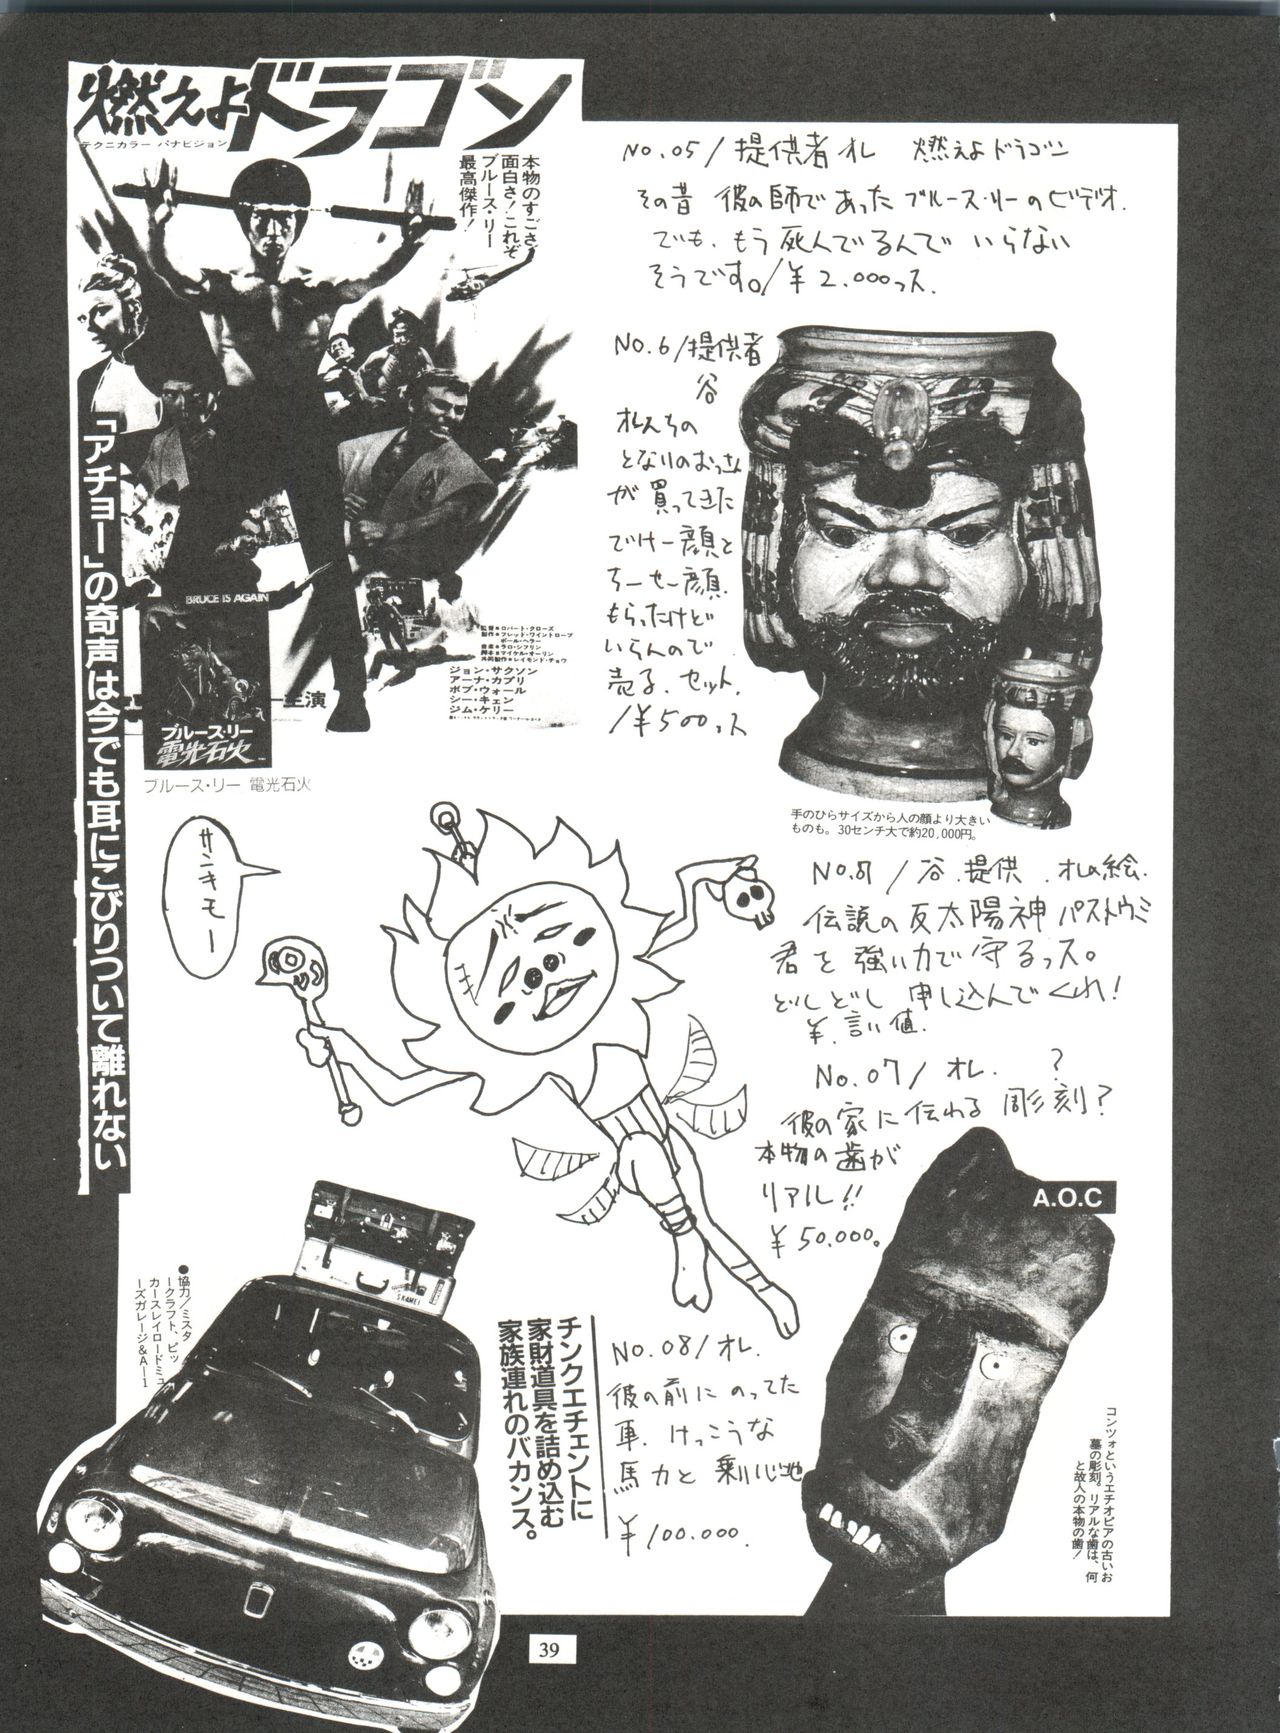 燃えよドラゴン
テクニカラー パナビジョン
本物のすごさ、
面白さ!これぞ
ブルース・リー
最高傑作!
「アチョー」の奇声は今でも耳にこびりついて離れない
BRUCE IS AGAIN
監督●ロバート・クローズ
製作●フレッド・ワイントローブ
ポール・ヘラー
音楽●ラロ・シフリン
脚本●マイケル・オーリン
共同製作●レイモンド・チョウ
ジョン・サクソン
アーナ・カプリ
ボブ・ウォール
シー・キェン
ジム・ケリー
ー主演
ブルース・リー
電光石火
ブルース・リー 電光石火
No.05/提供者オレ 燃えよドラゴン
その昔 彼の師であったブルース・リーのビデオ.
でも、もう死んでるんで いらない
そうです。/¥2.000っス.
No.6/提供者
谷
オレんちの
となりのおっさん
が買ってきた
でけー顔と
ちーせー顔.
もらったけど
いらんので
売る.セット.
/¥500っス
手のひらサイズから人の顔より大きい
ものも。30センチ大で約20,000円。
サンキモー
No.87/谷.提供.オレの絵.
伝説の反太陽神パストウミ
君を強い力で守るっス。
どしどし申し込んでくれ!
¥.言い値.
No.07/オレ. ?
彼の家に伝わる彫刻?
本物の歯が
リアル!!
¥50.000。
A.O.C
コンツォというエチオピアの古いお
墓の彫刻。リアルな歯は、何
と故人の本物の歯!
●協力/ミスタ
ークラフト、ピッ
カースレイロードミュ
ーズガレージ&A-1
チンクエチェントに
家財道具を詰め込む
家族連れのバカンス。
No.08/オレ.
彼の前にのってた
車.けっこうな
馬力と乗り心地
¥100.000.
39